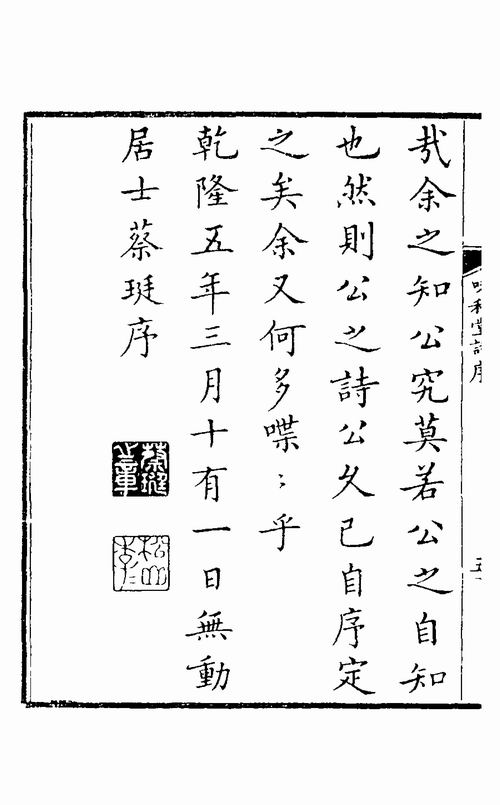 哉余之知公究莫若公之自知
也然則公之詩公久已自序定
之矣余又何多喋〻乎
乾隆五年三月十有一日無動
居士蔡珽序
蔡珽之章
詩序
五